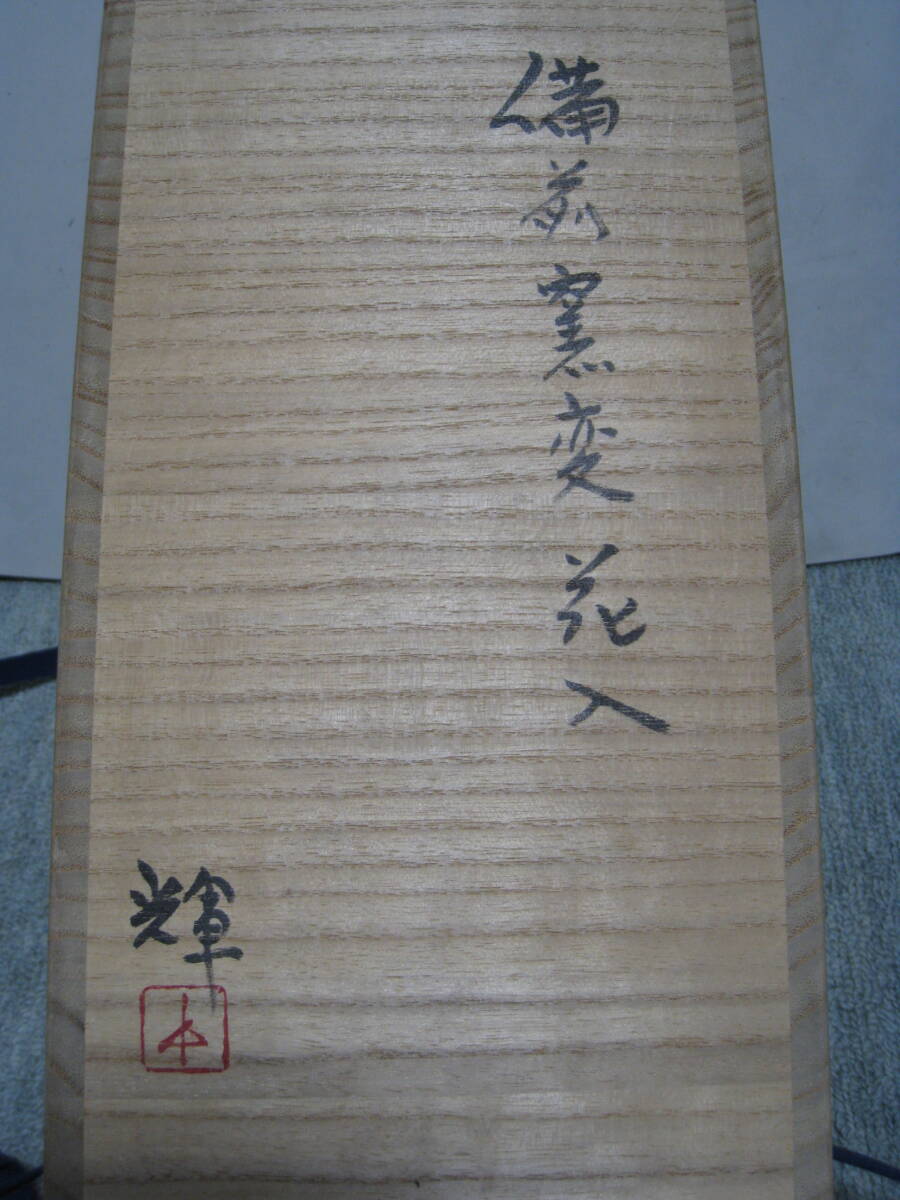 備前窯変花入
輝
本